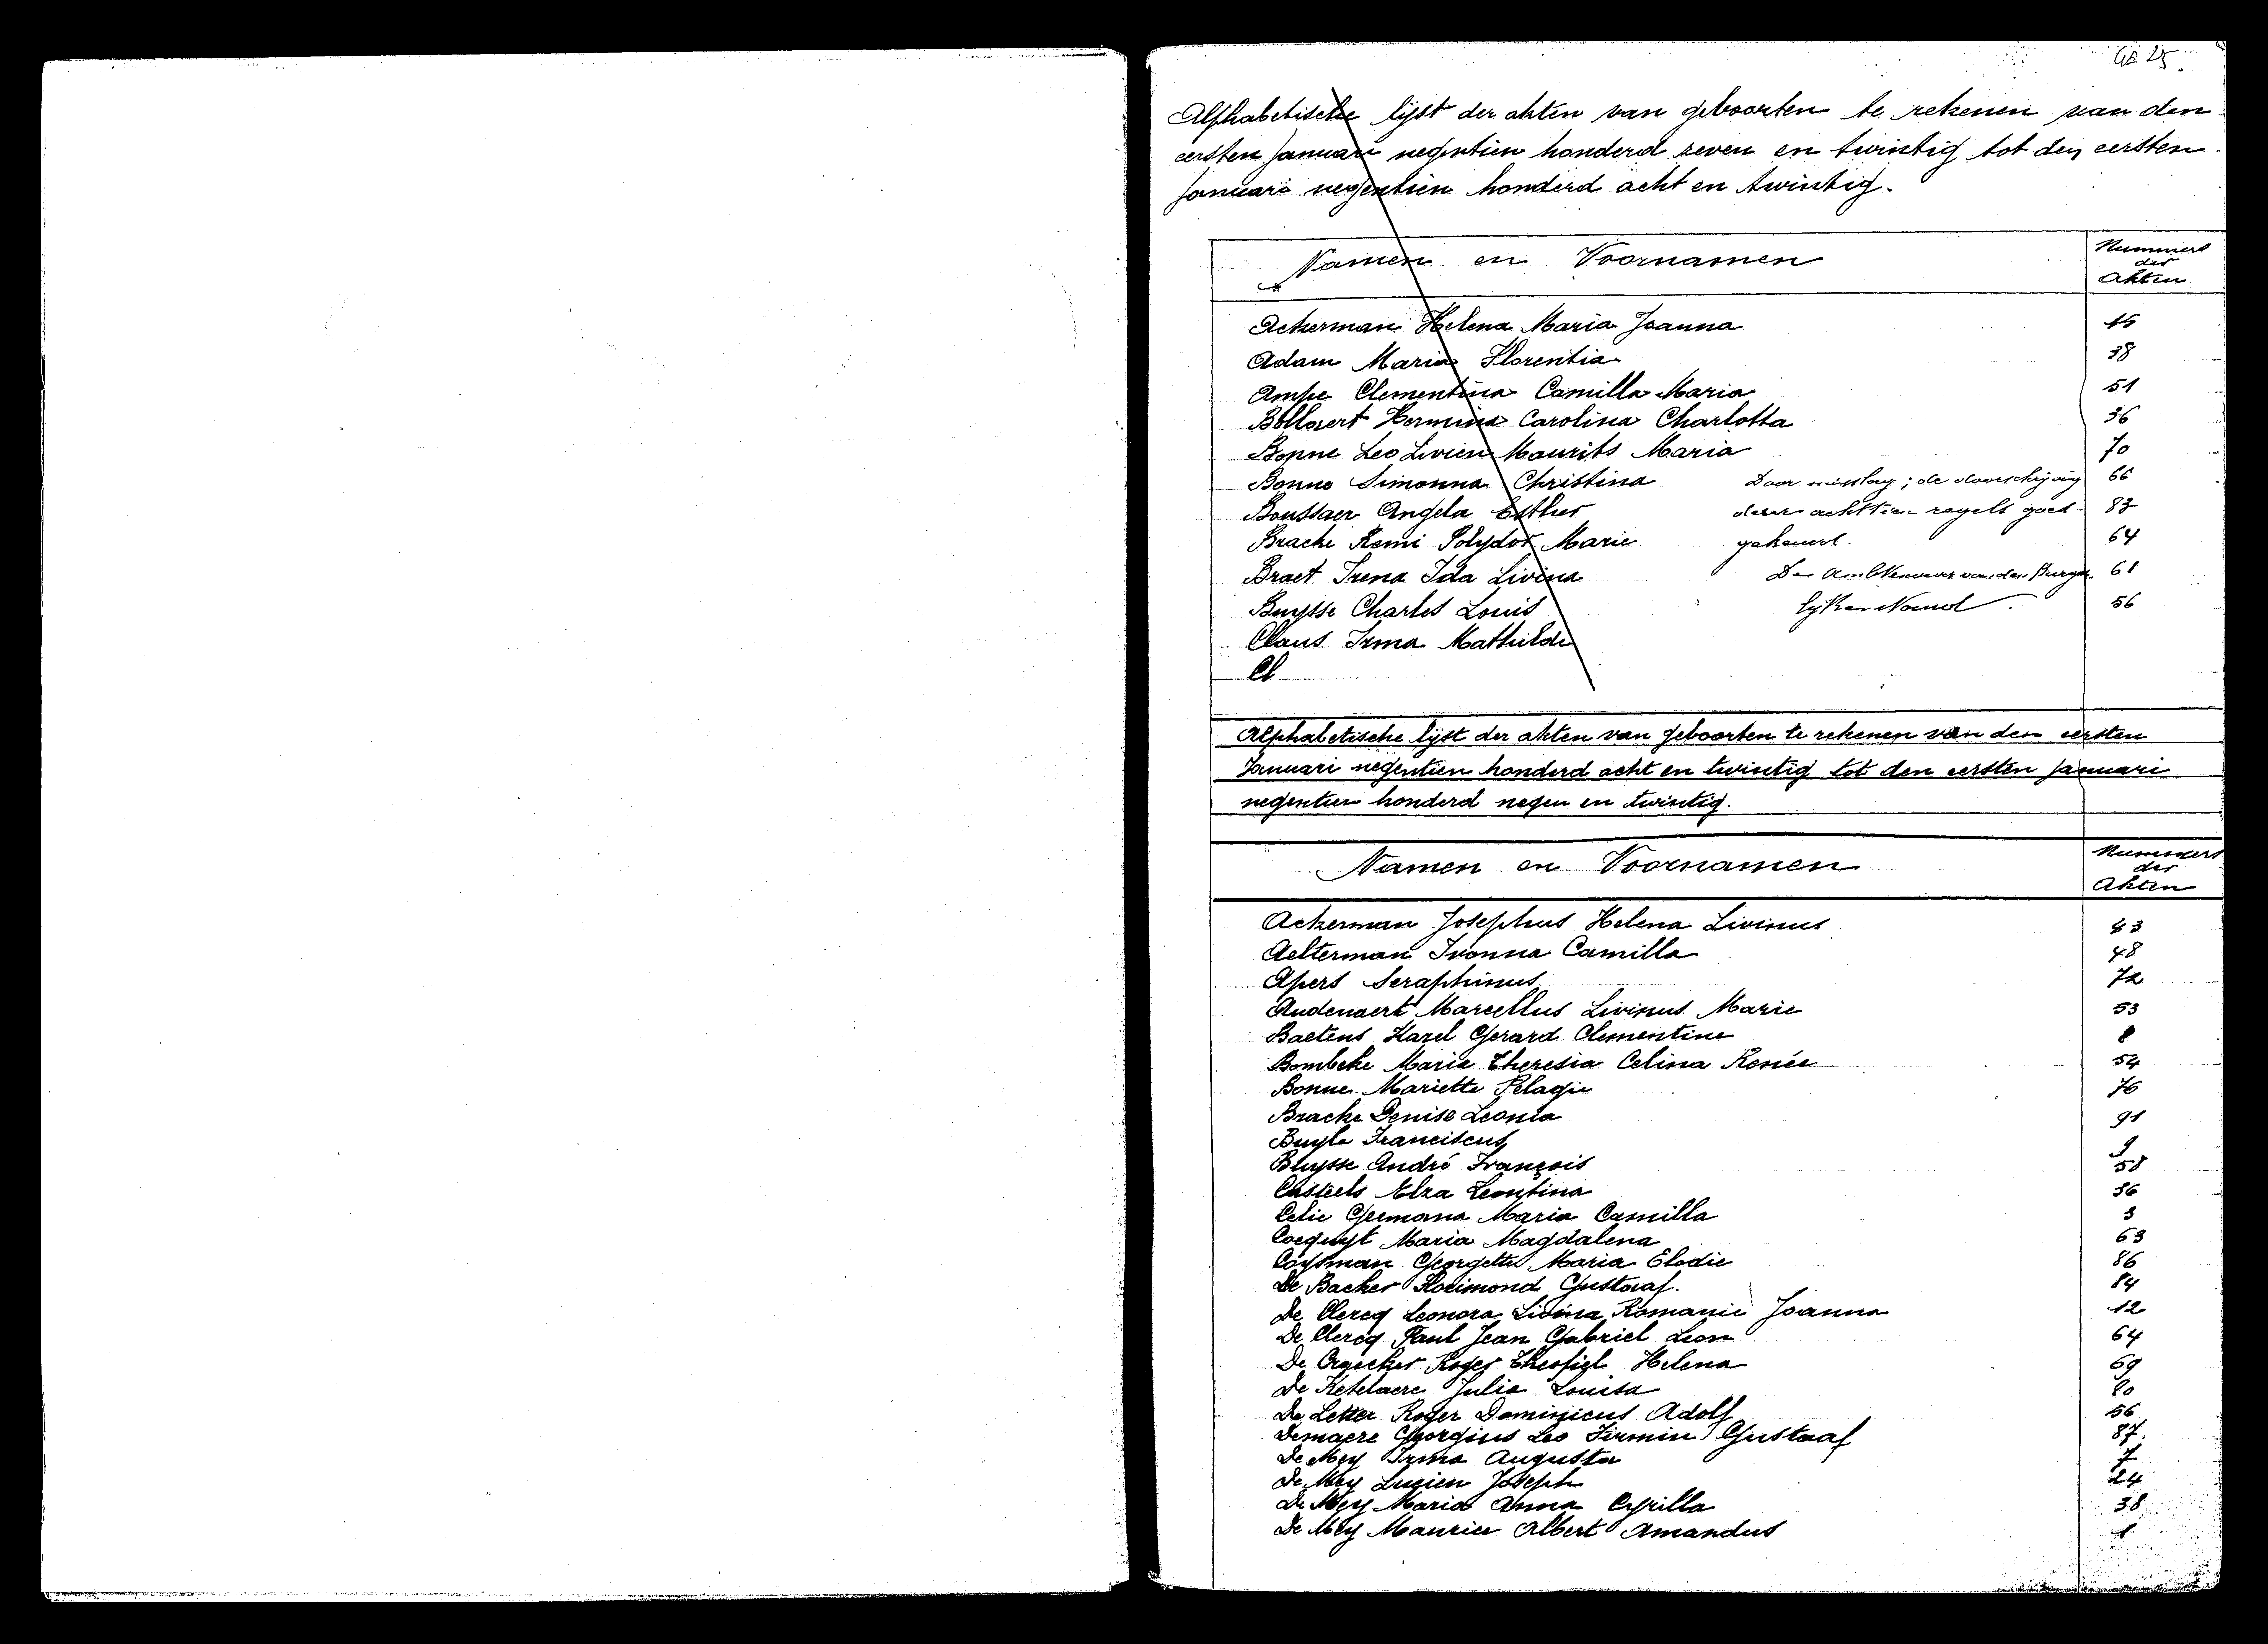 Alphabetische lijst der akten van geboorten te rekenen van den
eersten Januari negentien honderd zeven en twintig tot den eersten
Januari negentien honderd acht en twintig.
Namen en Voornamen
Nummers
der
Akten
Ackerman Helena Maria Joanna 15
Adam Maria Florentia 38
Ampe Clementina Camilla Maria 51
Bollaert Hermina Carolina Charlotta 36
Bonne Leo Livien Maurits Maria 70
Bonne Simonna Christina Door misslag; de doorschrijving 66
Boussaer Angela Esther dezer achttien regels goed- 83
Bracke Remi Polydor Marie gekeurd. 64
Braet Irena Ida Livina De Ambtenaar van den Burger- 61
Buysse Charles Louis lijken Stand. 56
Claus Irma Mathilde
Cl
Alphabetische lijst der akten van geboorten te rekenen van den eersten
Januari negentien honderd acht en twintig tot den eersten Januari
negentien honderd negen en twintig.
Namen en Voornamen
Nummers
der
Akten
Ackerman Josephus Helena Livinus 43
Aelterman Ivonna Camilla 48
Apers Seraphinus 72
Audenaert Marcellus Livinus Marie 53
Baetens Karel Gerard Clementine 8
Bombeke Maria Theresia Celina Renée 54
Bonne Mariette Pelagie 76
Bracke Denise Leonia 91
Buyle Franciscus 9
Buysse André François 58
Casteels Elza Leontina 36
Celie Germana Maria Camilla 3
Coequyt Maria Magdalena 63
Cosyman Georgette Maria Elodie 86
De Backer Florimond Gustaaf. 84
De Clercq Leonora Livina Romanie Joanna 12
De Clercq Paul Jean Gabriel Leon 64
De Craecker Roger Theofiel Helena 69
De Ketelaere Julia Louisa 80
De Letter Roger Dominicus Adolf 56
Demaere Georgius Leo Firmin Gustaaf 87.
De Mey Irma Augusta 7
De Mey Lucien Joseph 24
De Mey Maria Anna Cyrilla 38
De Mey Maurice Albert Amandus 1